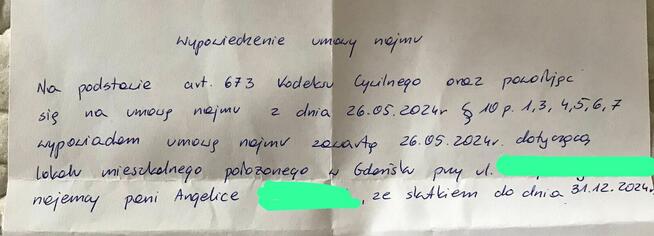 Wypowiedzenie umowy najmu
Na podstawie art. 673 Kodeksu Cywilnego oraz powołując
się na umowę najmu z dnia 26.05.2024r § 10 p. 1,3, 4,5,6,7
wypowiadam umowę najmu zawartą 26.05.2024r. dotyczącą
lokalu mieszkalnego położonego w Gdańsku przy ul.
najemcy pani Angelice , ze skutkiem do dnia 31.12.2024r.